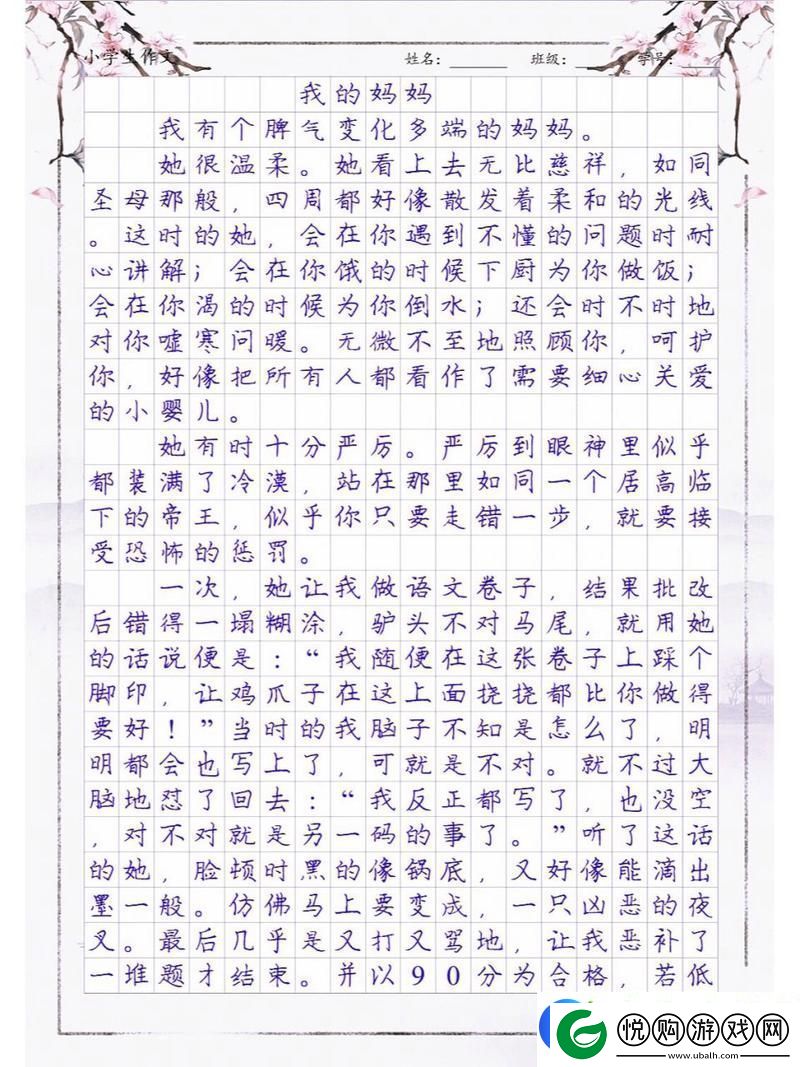 小学生作文
姓名：
班级：
学号：
我的妈妈
我有个脾气变化多端的妈妈。
她很温柔。她看上去无比慈祥，如同
圣母那般，四周都好像散发着柔和的光线
。这时的她，会在你遇到不懂的问题时耐
心讲解；会在你饿的时候下厨为你做饭；
会在你渴的时候为你倒水；还会时不时地
对你嘘寒问暖。无微不至地照顾你，呵护
你，好像把所有人都看作了需要细心关爱
的小婴儿。
她有时十分严厉。严厉到眼神里似乎
都装满了冷漠，站在那里如同一个居高临
下的帝王，似乎你只要走错一步，就要接
受恐怖的惩罚。
一次，她让我做语文卷子，结果批改
后错得一塌糊涂，驴头不对马尾，就用她
的话说便是：“我随便在这张卷子上踩个
脚印，让鸡爪子在这上面挠挠都比你做得
要好！”当时的我脑子不知是怎么了，明
明都会也写上了，可就是不对。就不过大
脑地怼了回去：“我反正都写了，也没空
，对不对就是另一码的事了。”听了这话
的她，脸顿时黑的像锅底，又好像能滴出
墨一般。仿佛马上要变成，一只凶恶的夜
叉。最后几乎是又打又骂地，让我恶补了
一堆题才结束。并以90分为合格，若低
悦购游戏网
www.ubalh.com